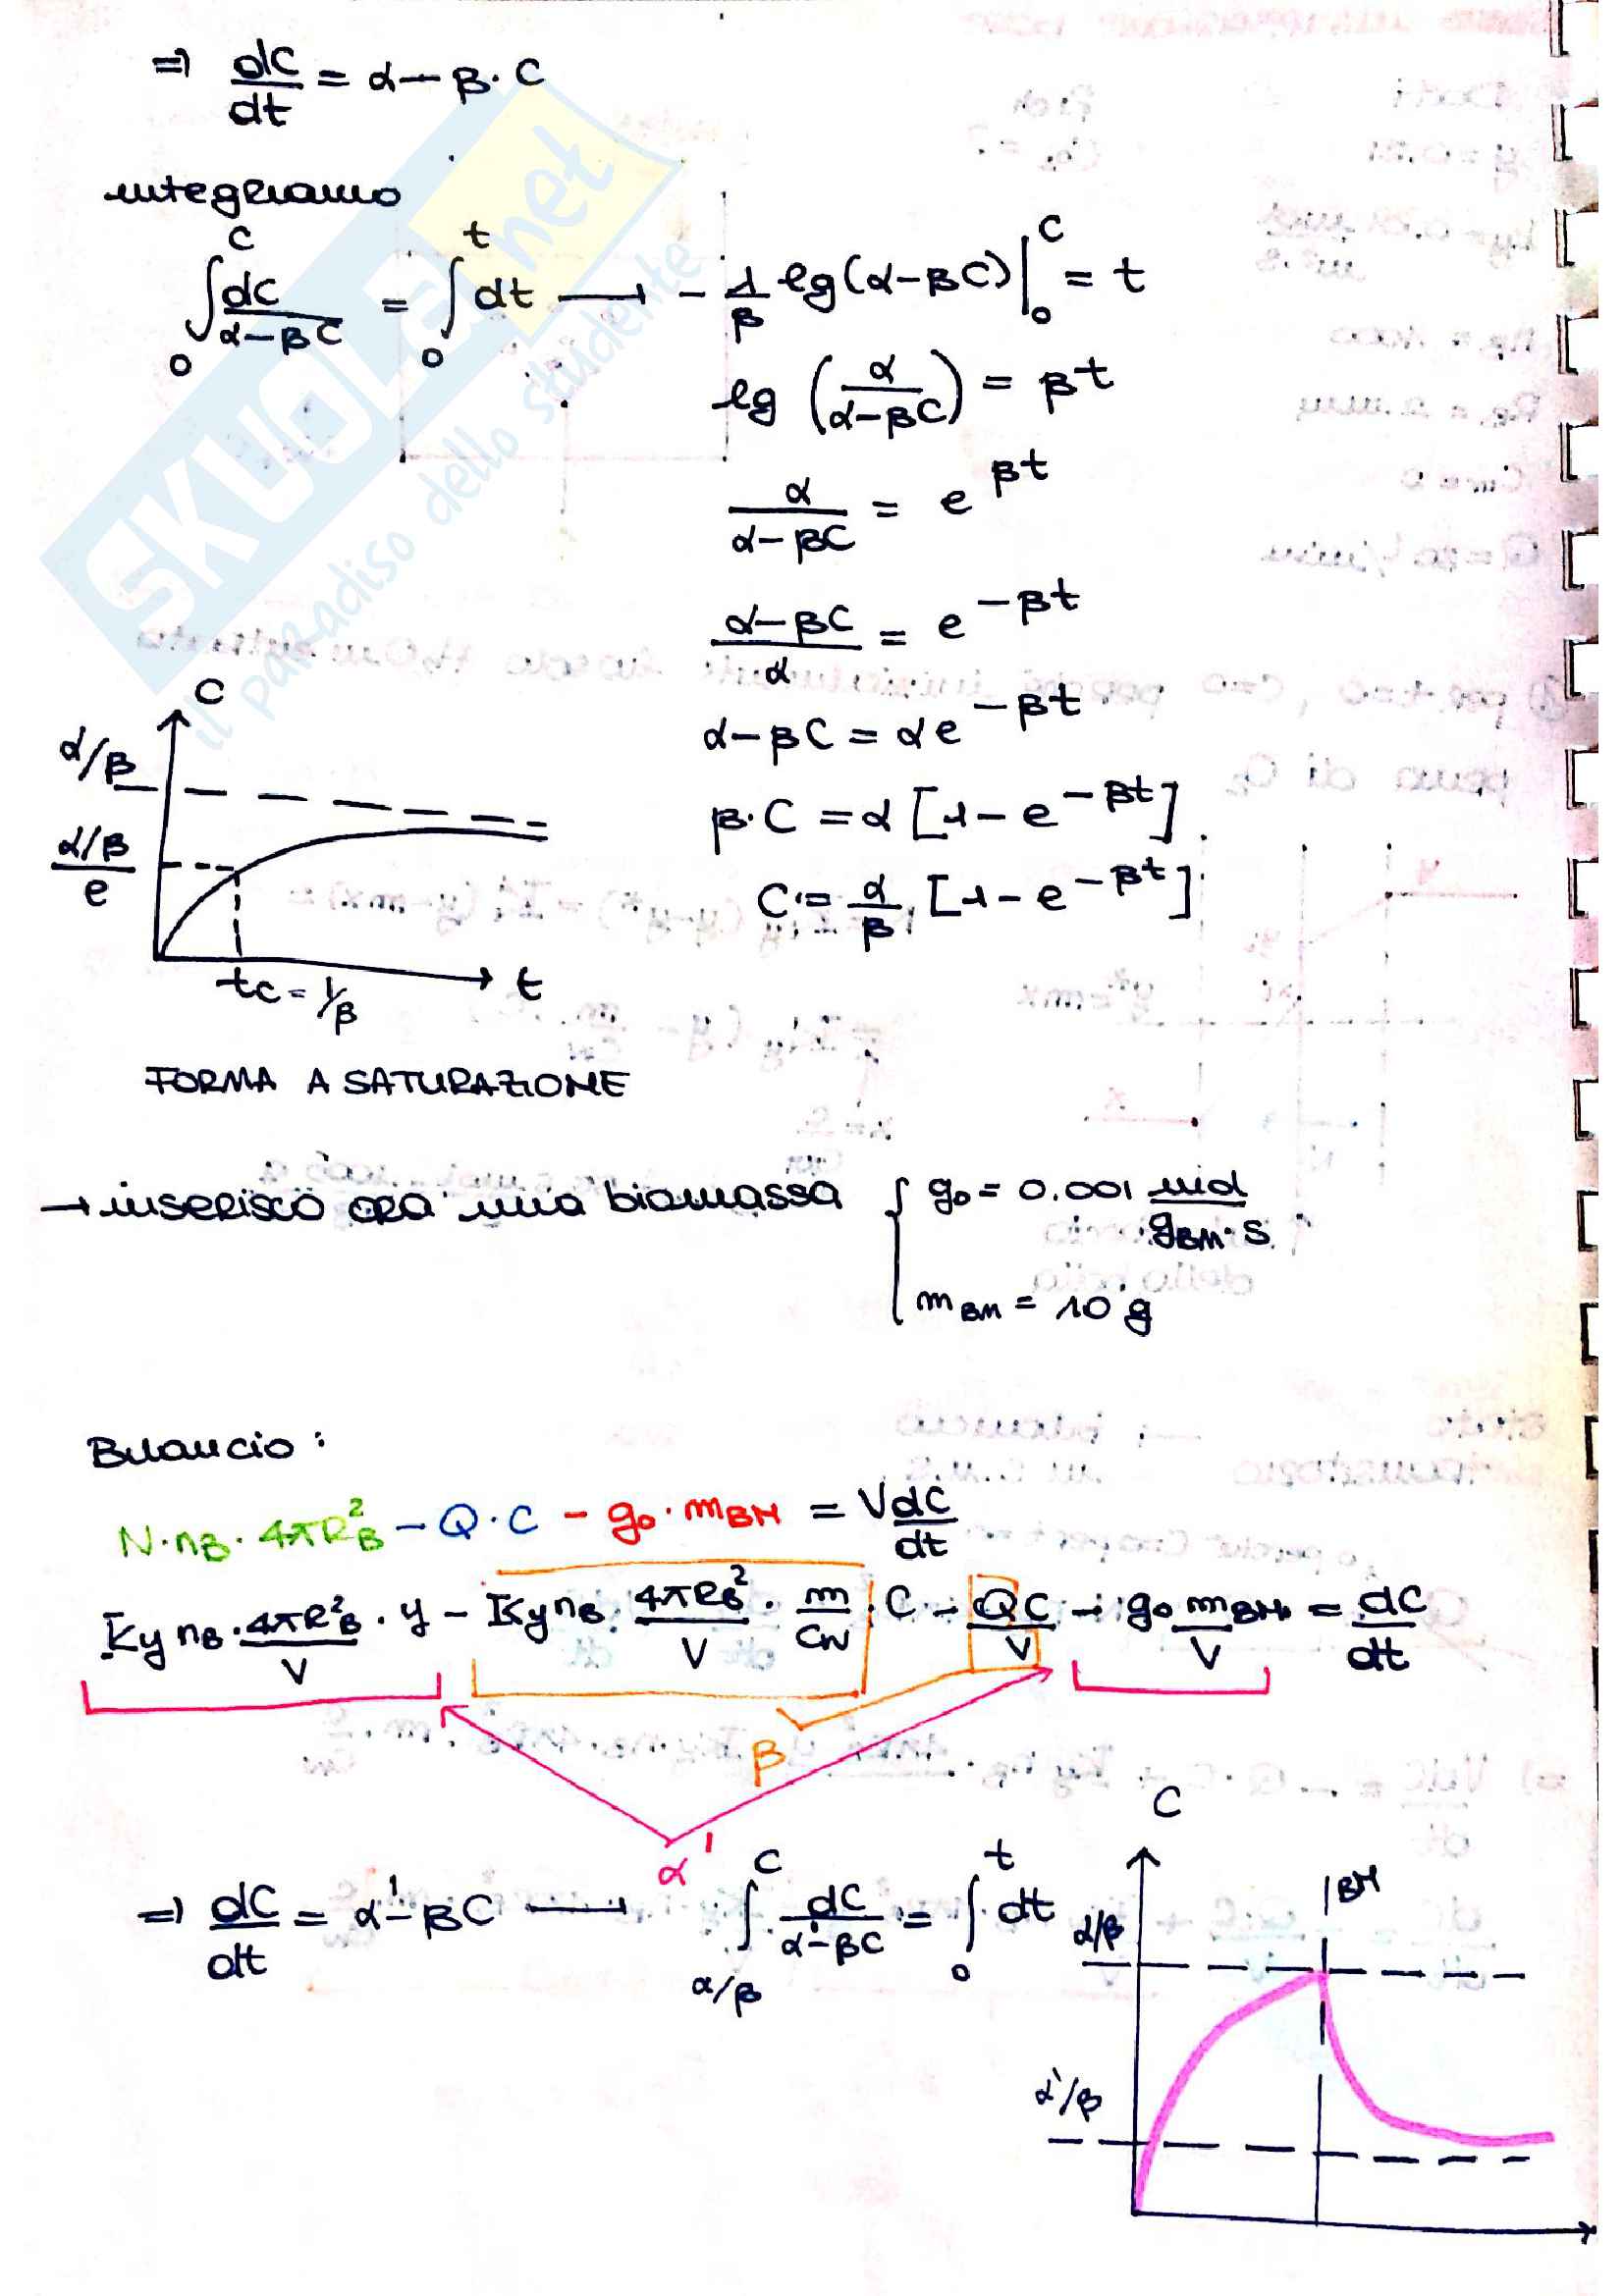 ⇒ dC/dt = α − β · C
integriamo
∫₀^C dC/(α−βC) = ∫₀^t dt ⟶ − 1/β lg(α−βC)|₀^C = t
lg (α/(α−βC)) = βt
α/(α−βC) = e^(βt)
(α−βC)/α = e^(−βt)
α−βC = αe^(−βt)
β·C = α [1− e^(−βt)]
C = α/β [1− e^(−βt)]
C
α/β
(α/β)/e
tc = 1/β
t
FORMA A SATURAZIONE
→ inserisco ora una biomassa { g₀ = 0.001 mol/(g_BM · s)
m_BM = 10 g
Bilancio :
N·n_B· 4πR_B² − Q·C − g₀·m_BM = V dC/dt
Ky n_B · 4πR_B²/V · y − Ky n_B · 4πR_B²/V · m/Cw · C − QC/V − g₀ m_BM/V = dC/dt
β
α'
⇒ dC/dt = α'−βC ⟶ ∫_(α/β)^C dC/(α'−βC) = ∫₀^t dt
C
BM
α/β
α'/β
SKUOLA.net
il paradiso dello studente